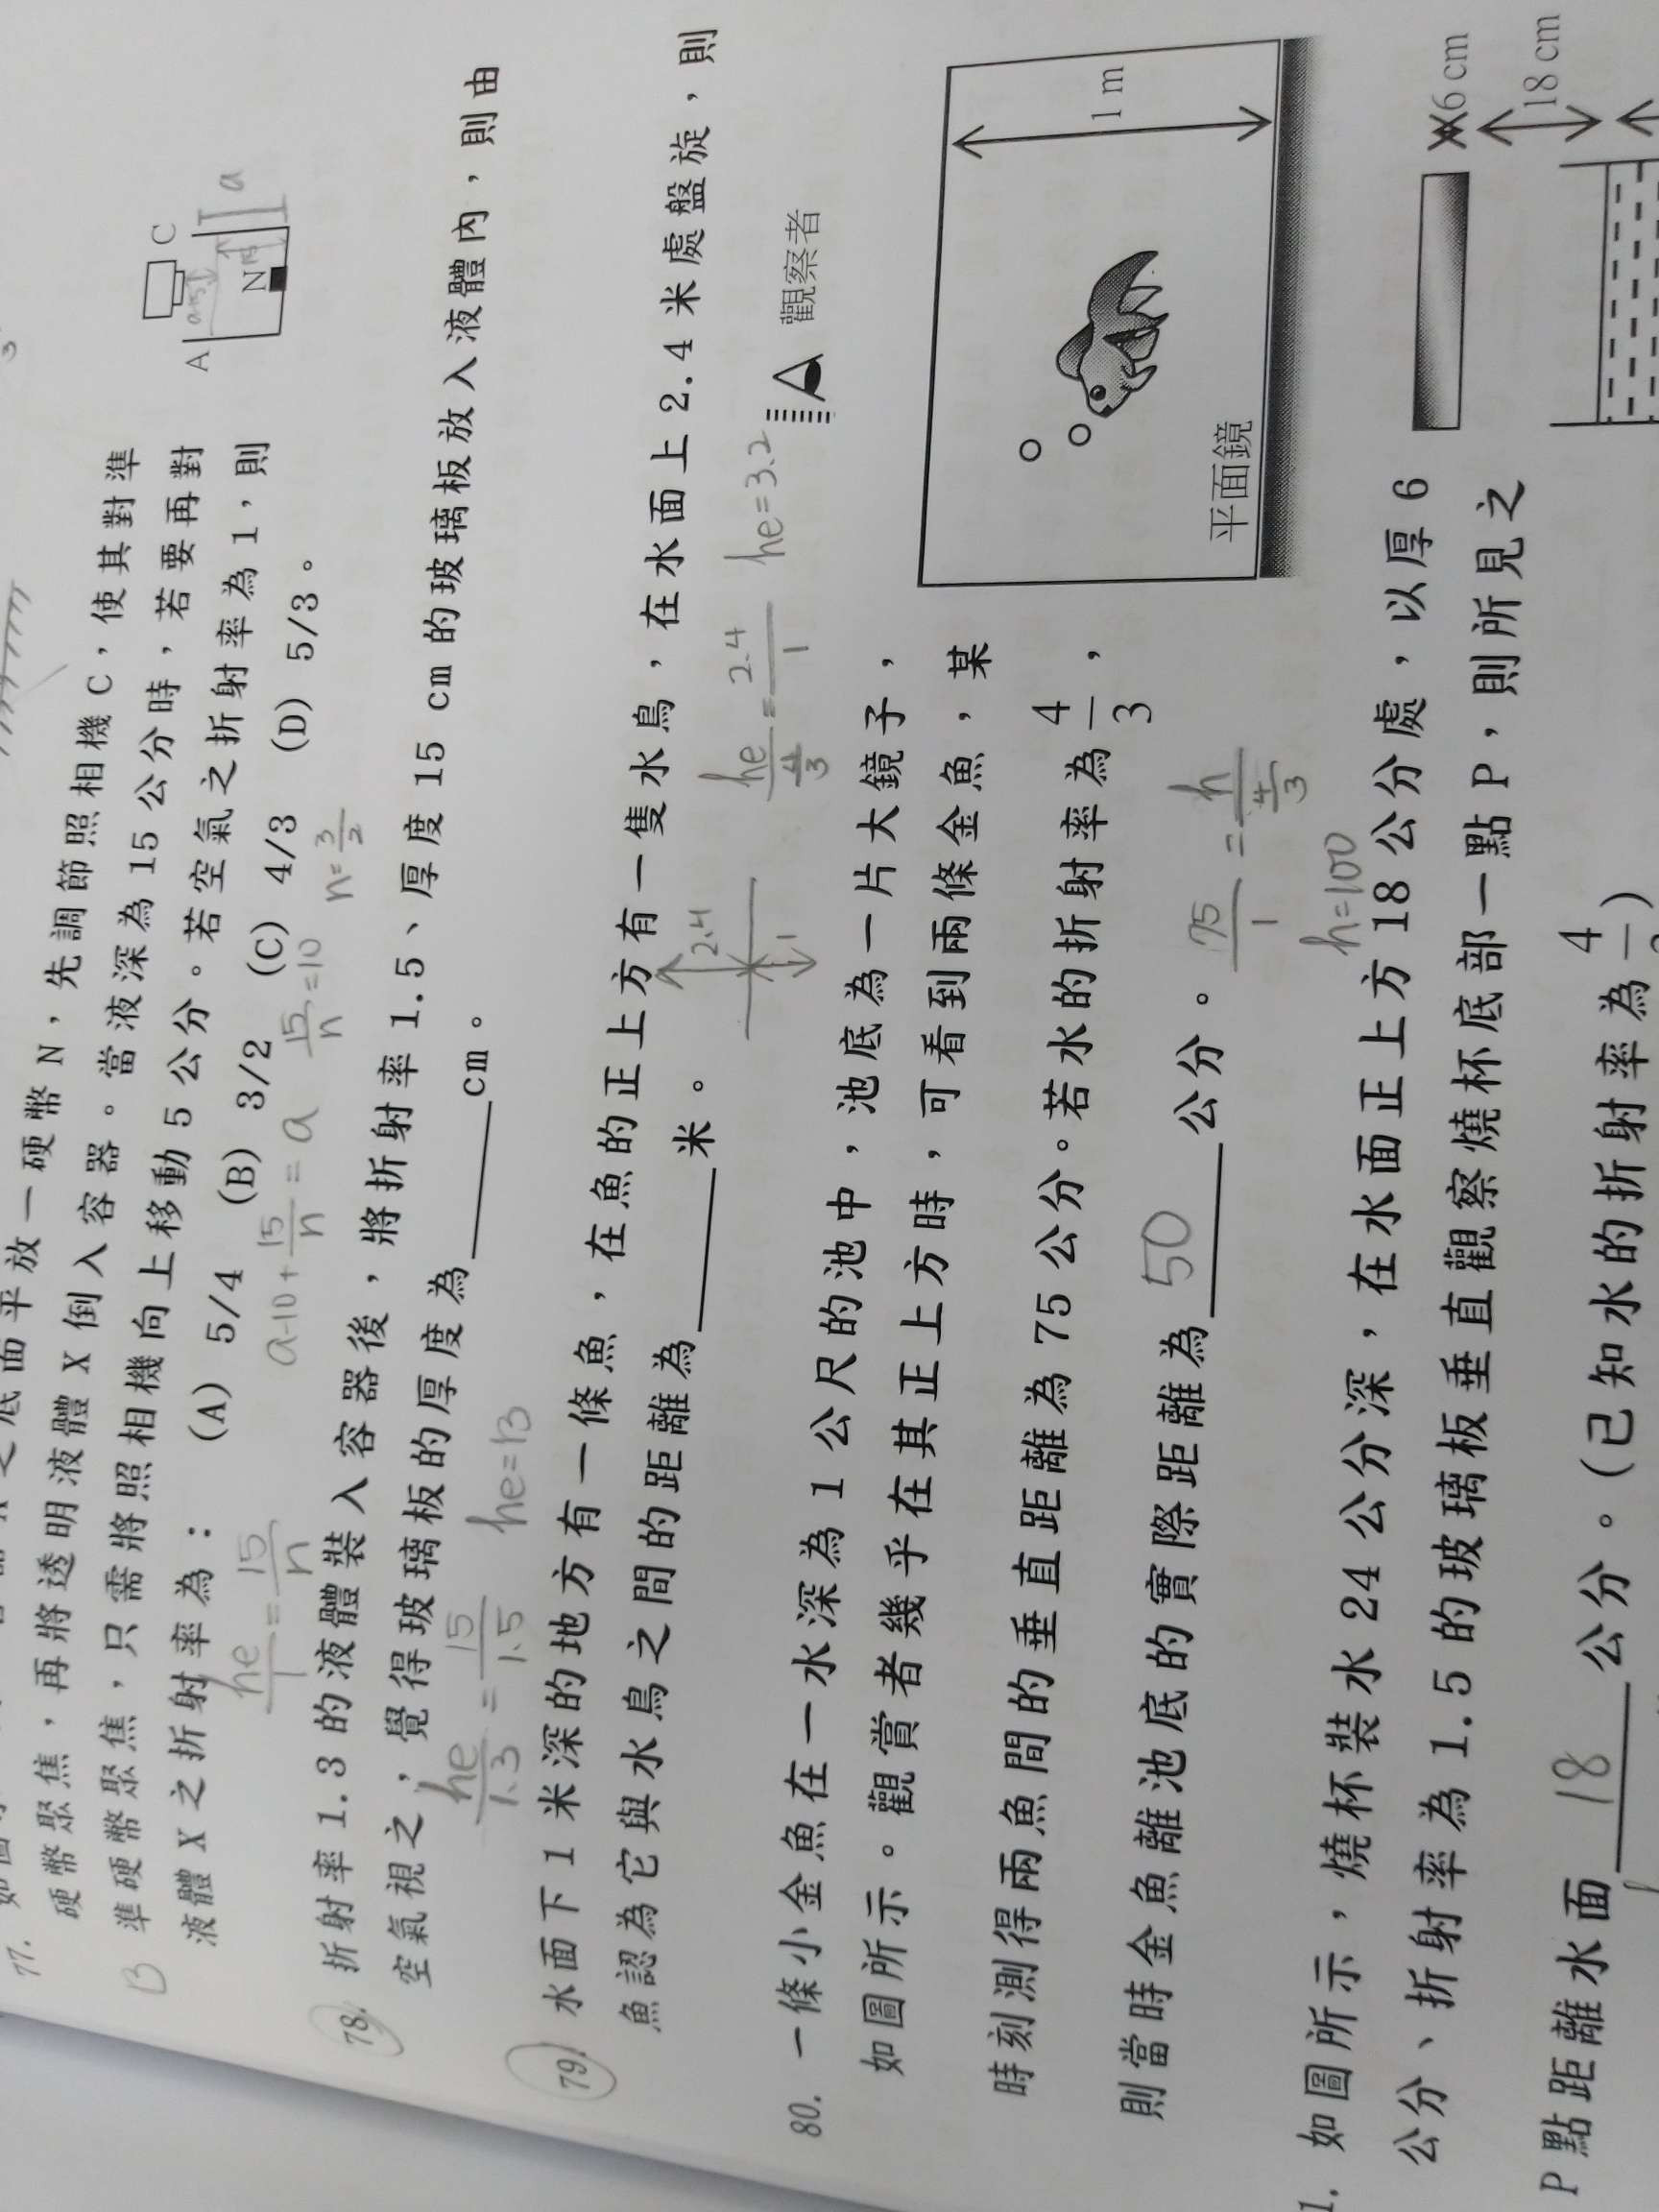 77.
硬幣聚焦，再將透明液體 X 倒入容器。當液深為 15 公分時，若要再對
準硬幣聚焦，只需將照相機向上移動 5 公分。若空氣之折射率為 1，則
液體 X 之折射率為： (A) 5/4 (B) 3/2 (C) 4/3 (D) 5/3。
B
he/1 = 15/n
a-10+15/n = a
15/n = 10
n = 3/2
C
A
N
a
78. 折射率 1.3 的液體裝入容器後，將折射率 1.5、厚度 15 cm 的玻璃板放入液體內，則由
空氣視之，覺得玻璃板的厚度為＿＿＿cm。
he/1.3 = 15/1.5
he=13
79. 水面下 1 米深的地方有一條魚，在魚的正上方有一隻水鳥，在水面上 2.4 米處盤旋，則
魚認為它與水鳥之間的距離為＿＿＿米。
2.4
1
he/(4/3) = 2.4/1
he=3.2
80. 一條小金魚在一水深為 1 公尺的池中，池底為一片大鏡子，
如圖所示。觀賞者幾乎在其正上方時，可看到兩條金魚，某
時刻測得兩魚間的垂直距離為 75 公分。若水的折射率為 4/3，
則當時金魚離池底的實際距離為 50 公分。
75/1 = h/(4/3)
h=100
觀察者
1 m
平面鏡
1. 如圖所示，燒杯裝水 24 公分深，在水面正上方 18 公分處，以厚 6
公分、折射率為 1.5 的玻璃板垂直觀察燒杯底部一點 P，則所見之
P 點距離水面 18 公分。(已知水的折射率為 4
6 cm
18 cm